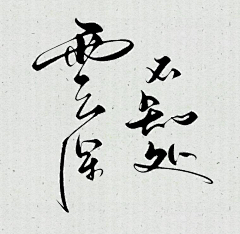 雲深
不知处